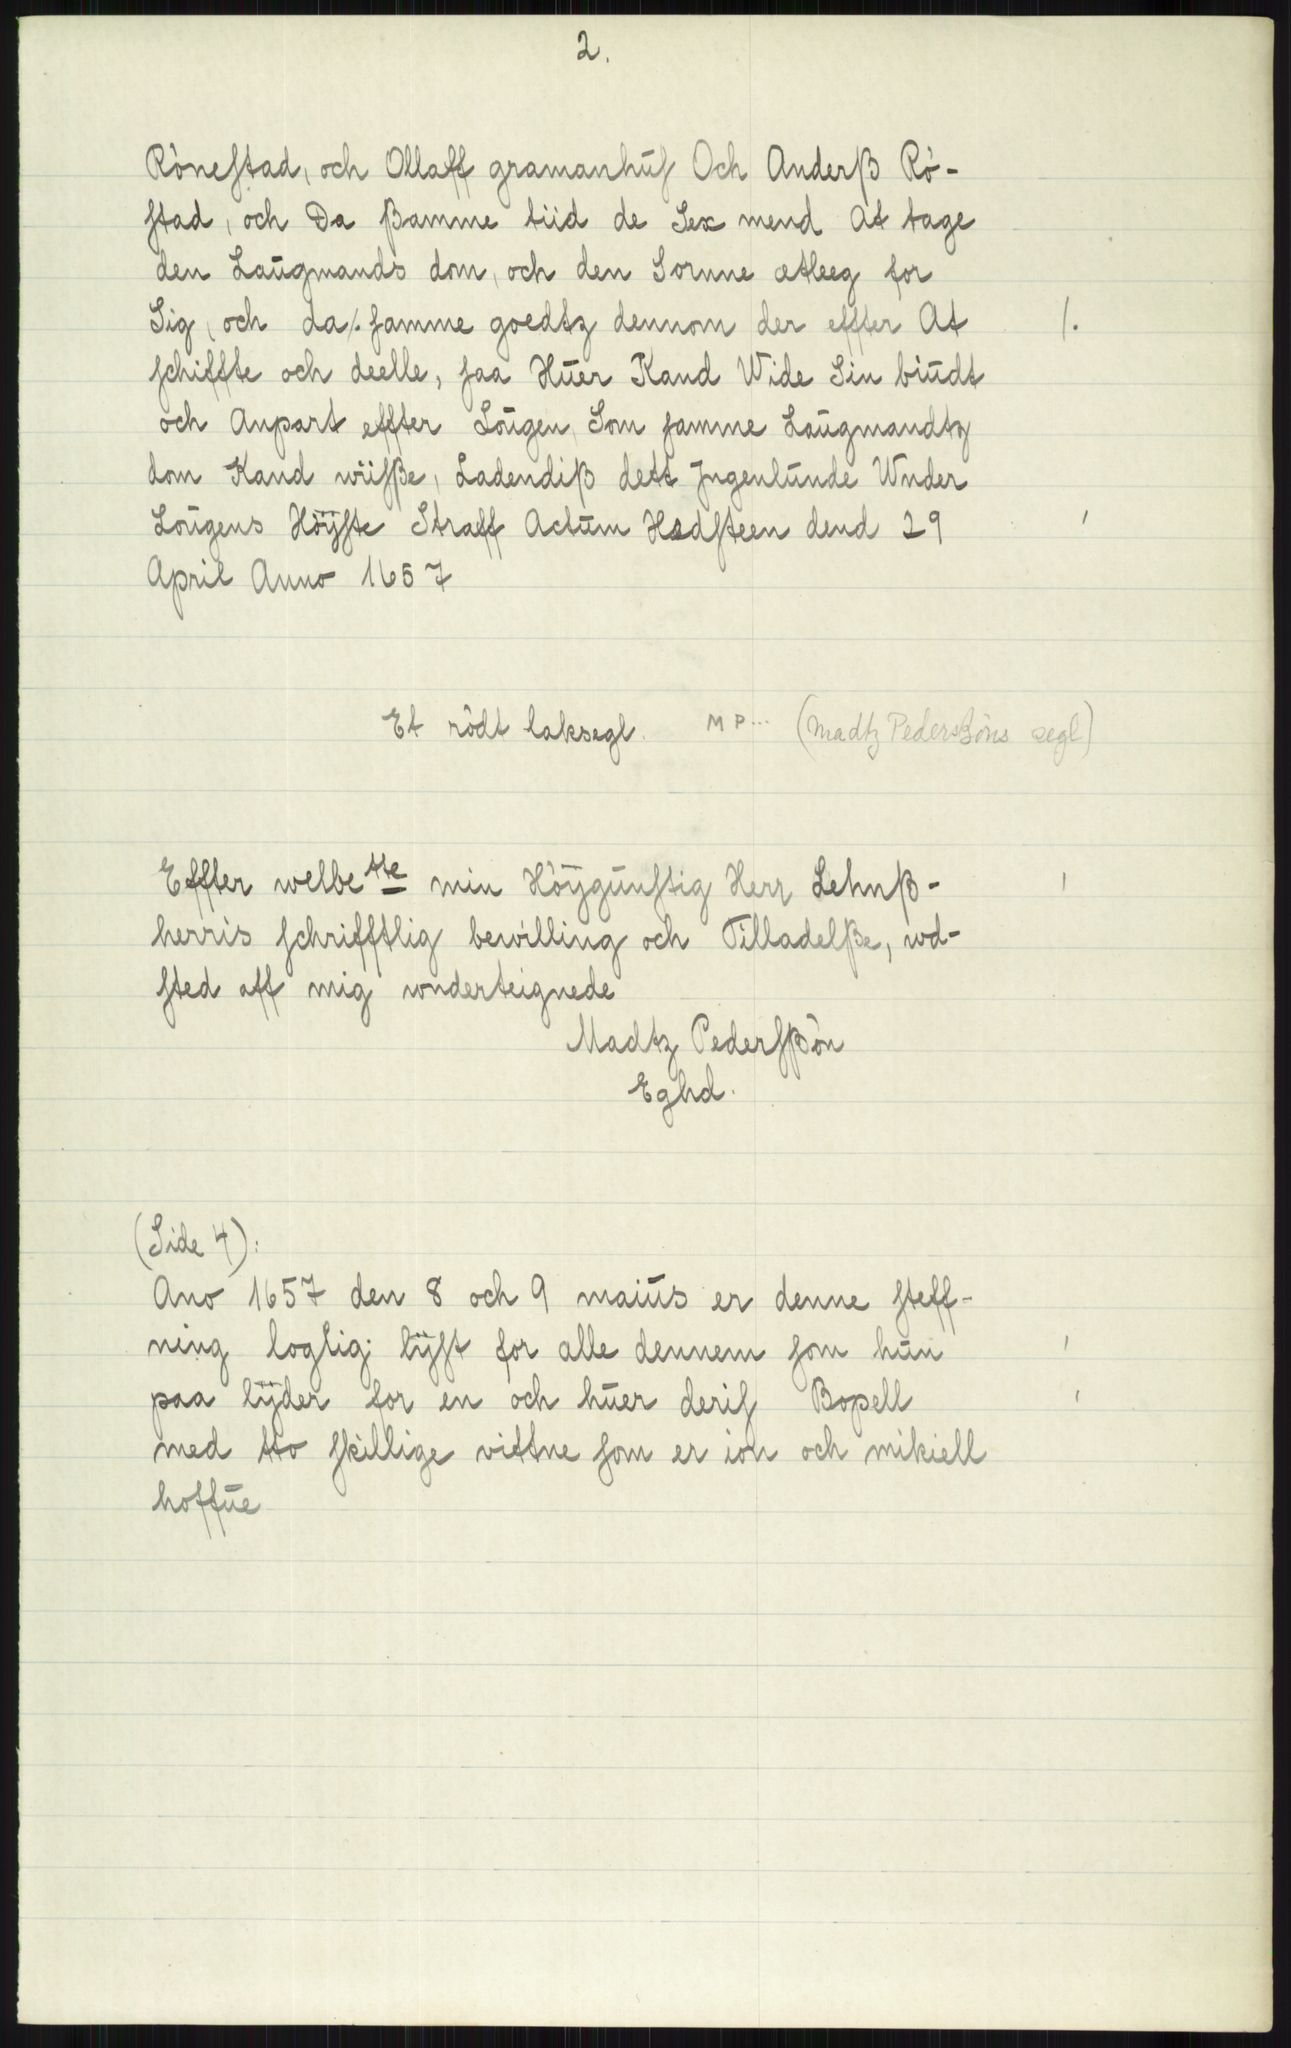 2.
Rònestad, och Ollaff gramanhus Och Anderß Rò-
stad, och Da ßamme tiid de Sex mend At tage
den Laugmands dom, och den Sornne
Sig, och da /. samme goedtz dennom der effter At /.
schiffte och deelle, saa Huer Kand Wide Sin biudt
och Anpart effter Lougen, Som samme Laugmandtz
dom Kand wiisße, Ladendiß dett Jngenlunde Wnder
Lougens Höÿste Straff Actum Hadsteen dend 29
April Anno 1657
Et rödt laksegl. M P... (Madtz Pedersßöns segl)
Effter welbette min Höÿgunstig Herr Lehnß-
herris schrifftlig bewilling och Tilladelße, wd-
sted aff mig wnderteignede
Madtz Pedersßòn
Eghd.
(Side 4):
Ano 1657 den 8 och 9 maius er denne steff-
ning loglig lÿst for alle dennem som hun
paa lÿder for en och huer deris Bopell
med tto skillige vittne som er ion och mikiell
hoffue